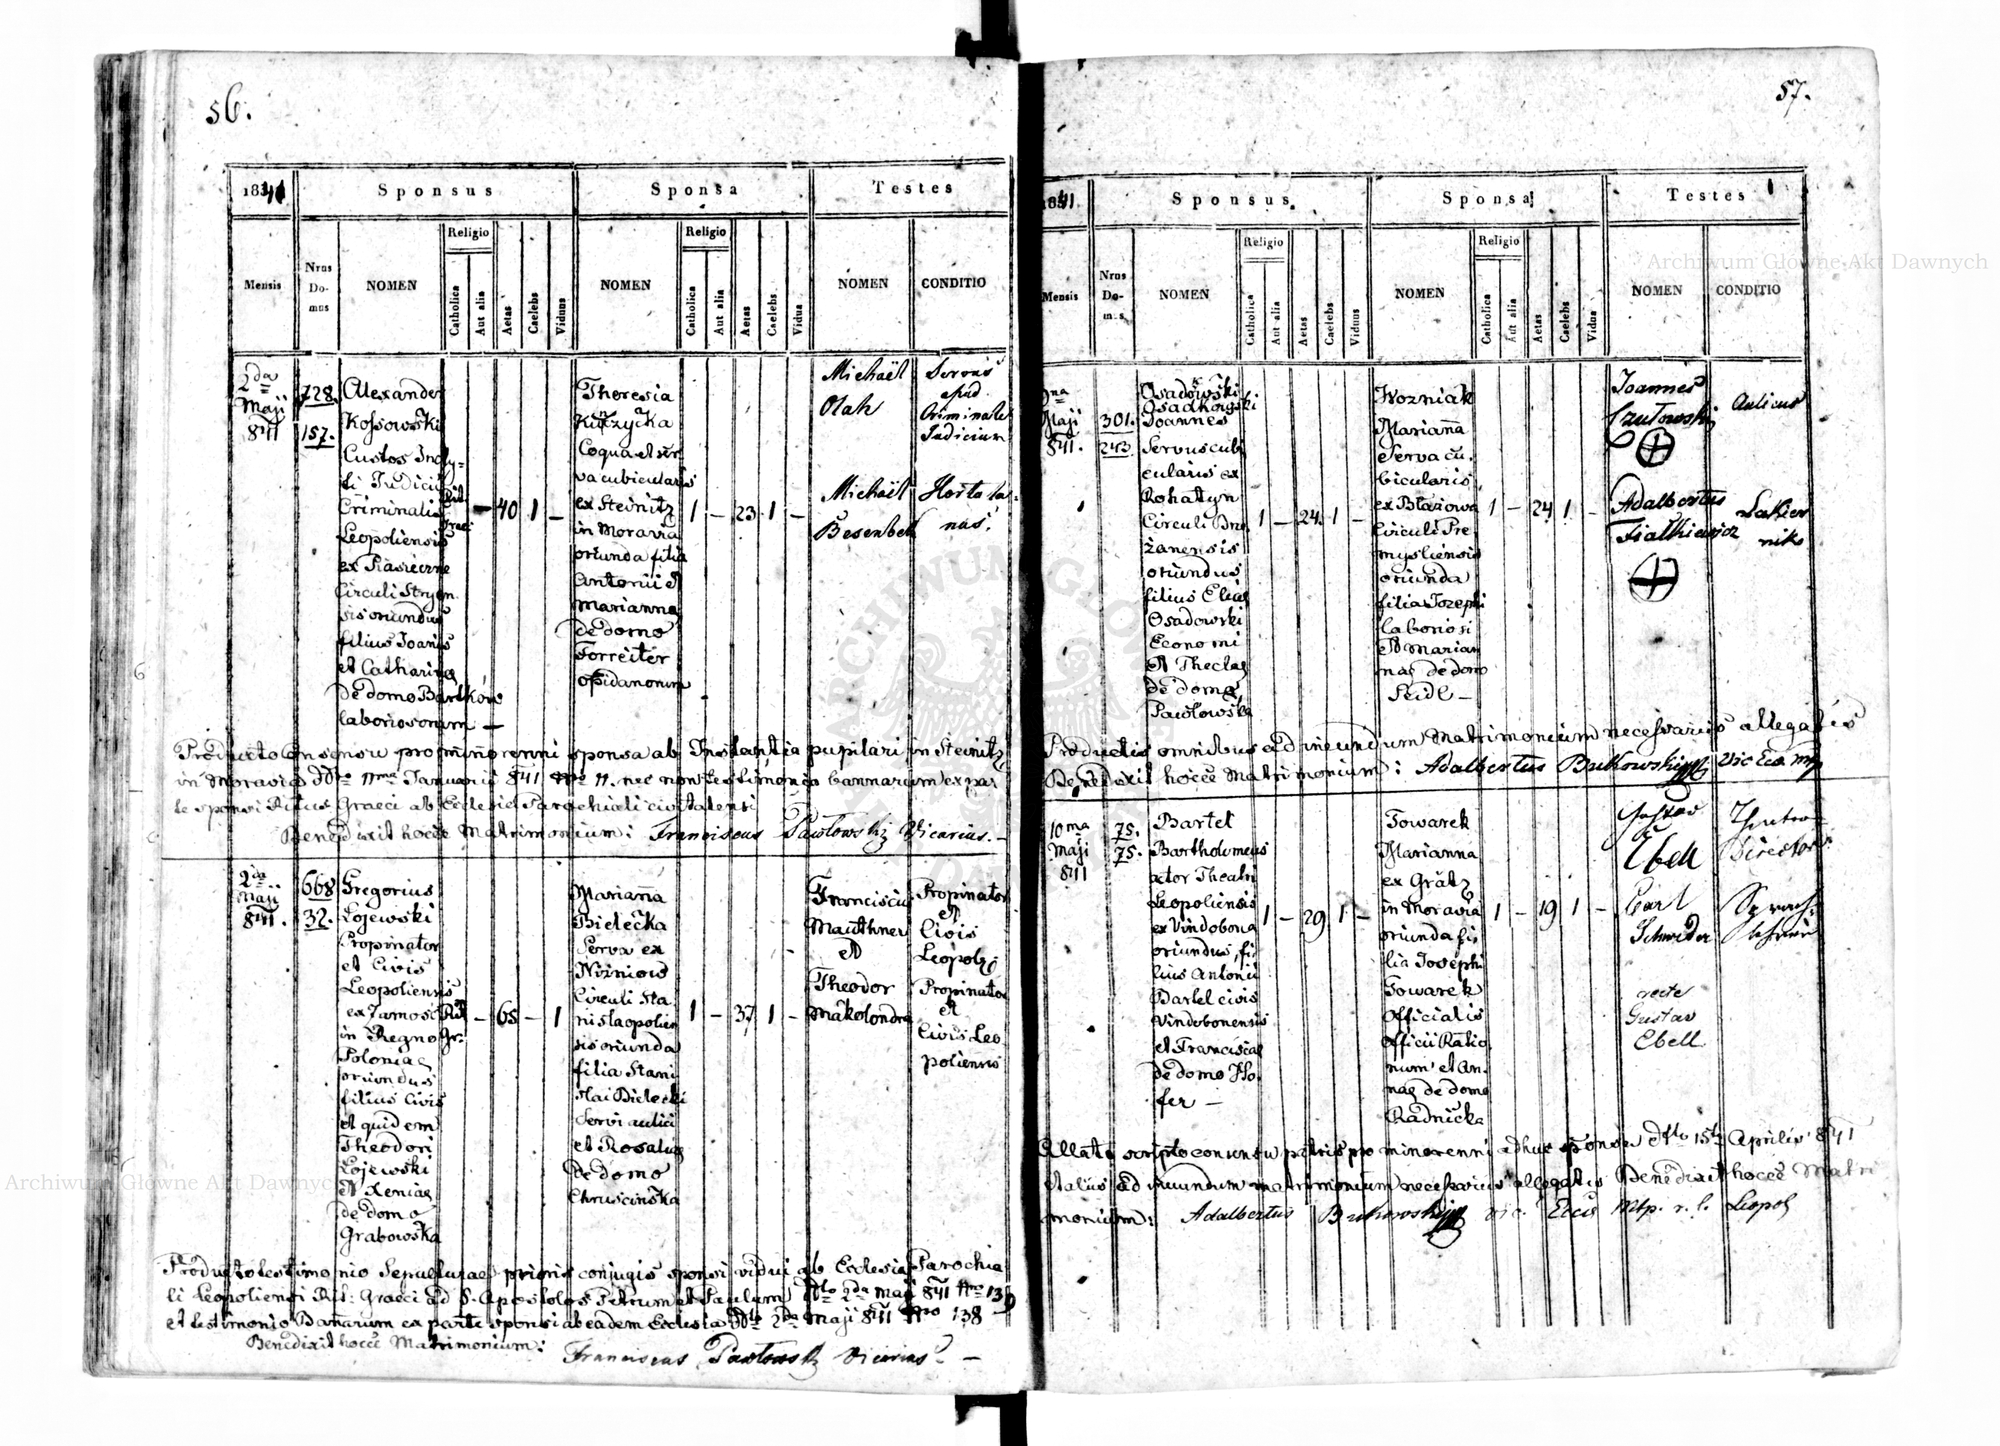 56.
1841
Sponsus
Sponsa
Testes
Mensis
Nrus Domus
NOMEN
Religio
Catholica
Aut alia
Aetas
Caelebs
Viduus
NOMEN
Religio
Catholica
Aut alia
Aetas
Caelebs
Vidua
NOMEN
CONDITIO
2da
Maji
841
728.
157.
Alexander
Kossowski
Custos Incly-
ti Judicii
Criminalis
Leopoliensis
ex Piasieczne
Circuli Stryen
sis oriundus
filius Joanis
et Catharinae
de domo Bartków
laboriosorum —
Rit
Graeci
—
40
1
—
Theresia
Kutzycka
Coqua et ser
va cubicularis
ex Steinitz
in Moravia
oriunda filia
Antonii et
Marianna
de domo
Forreiter
opidanorum
1
—
23
1
—
Michaël
Olah
Michaël
Besenbek
Servus
apud
Criminale
Judicium
Hortula-
nus.
Producto Consensu pro minorenni sponsa ab Instantia pupilari in Steinitz
in Moravia ddto 11ma Januarii 841 Nro 11. nec non testimonio bannarum ex par
te sponsi Ritus Graeci ab Ecclesia Parochiali civitatensi
Benedixit hocce Matrimonium: Franciscus Pawlowski Vicarius. —
2da
Maji
841.
668
32.
Gregorius
Łojewski
Propinator
et Civis
Leopoliensis
ex Zamosc
in Regno
Poloniae
oriundus
filius Civis
et quidem
Theodori
Łojewski
et Xeniae
de domo
Grabowska
Rit
Gr:
—
65
—
1
Marianna
Bielecka
Serva ex
Woźniow
Circuli Sta
nislaopolien
sis oriunda
filia Stani
slai Bielecki
Servi aulici
et Rosaliae
de domo
Chruscińska
1
—
37
1
—
Franciscus
Mauthner
et
Theodor
Makolondra
Propinator
et
Civis
Leopol:
Propinator
et
Civis Leo
poliensis
Producto testimonio Sepulturae prioris conjugis sponsi vidui ab Ecclesia Parochia
li Leopoliensi Rit: Graeci ad S. Apostolos Petrum et Paulum ddto 2da Maji 841 Nro 139
et testimonio Bannarum ex parte sponsi ab eadem Ecclesia ddto 2da Maji 841 Nro 138
Benedixit hocce Matrimonium: Franciscus Pawlowski Vicarius. —
57.
1841
Sponsus
Sponsa
Testes
Mensis
Nrus Domus
NOMEN
Religio
Catholica
Aut alia
Aetas
Caelebs
Viduus
NOMEN
Religio
Catholica
Aut alia
Aetas
Caelebs
Vidua
NOMEN
CONDITIO
9na
Maji
841.
301.
243
Osadowski
Osadkowski
Joannes
Servus cubi
cularis ex
Rohatyn
Circuli Brze
żanensis
oriundus
filius Eliae
Osadowski
Economi
et Theclae
de domo
Pawlowska
1
—
24.
1
—
Wozniak
Marianna
Serva cu
bicularis
ex Błażowa
Circuli Pre
mysliensis
oriunda
filia Josephi
laboriosi
et Marian
nae de domo
Seidl —
1
—
24
1
—
Joannes
Czułowski
Adalbertus
Fiałkiewicz
Aulicus
Lakier
nik
Productis omnibus ad ineundum Matrimonium necessariis allegatis
Benedixit hocce Matrimonium: Adalbertus Butkowski Vic Ecc mp
10ma
Maji
841
75.
75.
Bartel
Bartholomeus
actor Theatri
Leopoliensis
ex Vindobona
oriundus, fi-
lius Antonii
Bartel civis
Vindobonensis
et Franciscae
de domo Ho
fer —
1
—
29
1
—
Towarek
Marianna
ex Grätz
in Moravia
oriunda fi
lia Josephi
Towarek
Officialis
Officii Ratio
num et An
nae de domo
Radnicka
1
—
19
1
—
Gustav
Ebell
Carl
Schneider
recte
Gustav
Ebell
Theater
Director
Sprach-
lehrer
Allato scripto consensu patris pro minorenni adhuc sponsa ddto 15ta Aprilis 841
et aliis ad ineundum matrimonium necessariis allegatis Benedixit hocce Matri
monium: Adalbertus Butkowski Vic. Eccl Mtp. r. l. Leopol
Archiwum Główne Akt Dawnych
Archiwum Główne Akt Dawnych